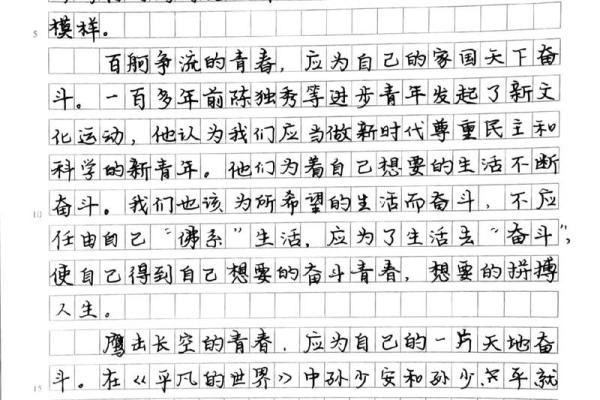 5 模样。
百舸争流的青春，应为自己的家国天下奋
斗。一百多年前陈独秀等进步青年发起了新文
化运动，他认为我们应当做新时代尊重民主和
科学的新青年。他们为着自己想要的生活不断
10 奋斗。我们也该为所希望的生活而奋斗，不应
任由自己“佛系”生活，应为了生活去“奋斗”，
使自己得到自己想要的奋斗青春，想要的拼搏
人生。
鹰击长空的青春，应为自己的一片天地奋
15 斗。在《平凡的世界》中孙少安和孙少平就